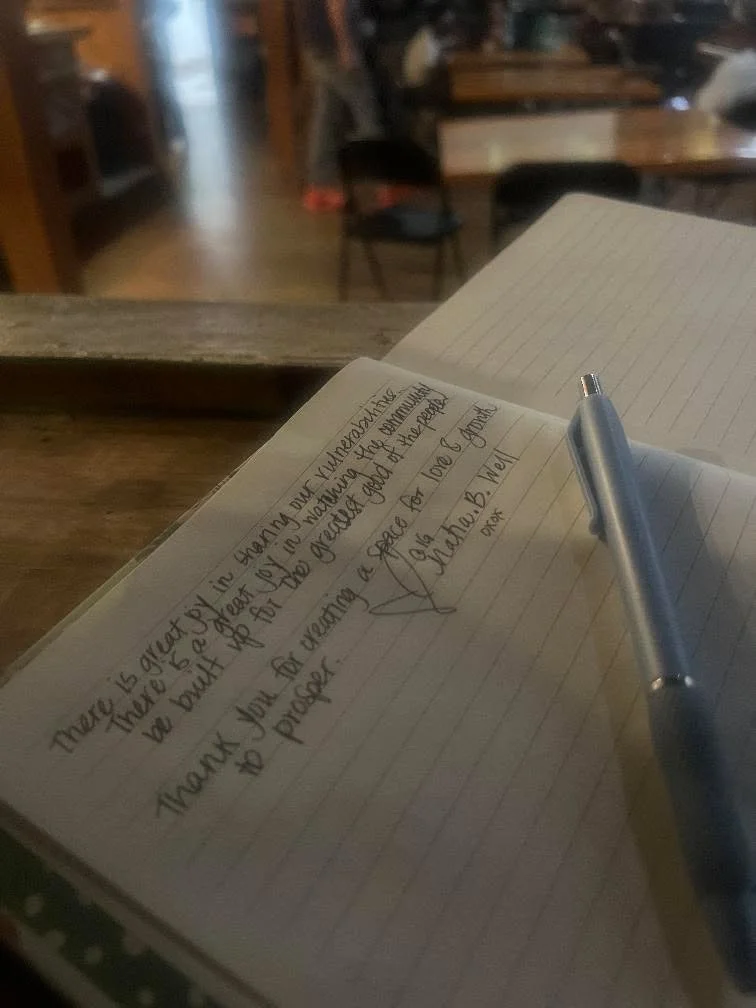 There is great joy in sharing our vulnerabilities.
There is a great joy in watching the community
be built up for the greatest good of the people
Thank you for creating a space for love & growth
to prosper.
B. Well
oxox